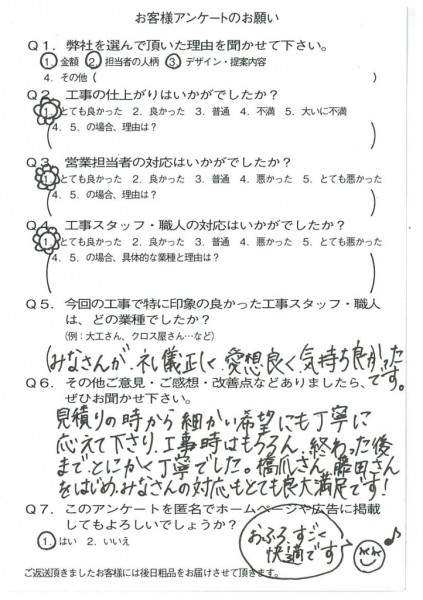 お客様アンケートのお願い
Q1. 弊社を選んで頂いた理由を聞かせて下さい。
1. 金額 2. 担当者の人柄 3. デザイン・提案内容
4. その他( )
Q2. 工事の仕上がりはいかがでしたか?
1. とても良かった 2. 良かった 3. 普通 4. 不満 5. 大いに不満
4. 5. の場合、理由は?
Q3. 営業担当者の対応はいかがでしたか?
1. とても良かった 2. 良かった 3. 普通 4. 悪かった 5. とても悪かった
4. 5. の場合、理由は?
Q4. 工事スタッフ・職人の対応はいかがでしたか?
1. とても良かった 2. 良かった 3. 普通 4. 悪かった 5. とても悪かった
4. 5. の場合、具体的な業種と理由は?
Q5. 今回の工事で特に印象の良かった工事スタッフ・職人
は、どの業種でしたか?
(例:大工さん、クロス屋さん…など)
(みなさんが、礼儀正しく、愛想良く、気持ち良かった
です。
Q6. その他ご意見・ご感想・改善点などありましたら、
ぜひお聞かせ下さい。
見積りの時から細かい希望にも丁寧に
応えて下さり、工事時はもちろん、終わった後
までとにかく丁寧でした。橋爪さん、藤田さん
をはじめ、みなさんの対応もとても良大満足です!
Q7. このアンケートを匿名でホームページや広告に掲載
してもよろしいでしょうか?
1. はい 2. いいえ
おふろ、すごく
快適です♪
ご返送頂きましたお客様には後日粗品をお届けさせて頂きます。